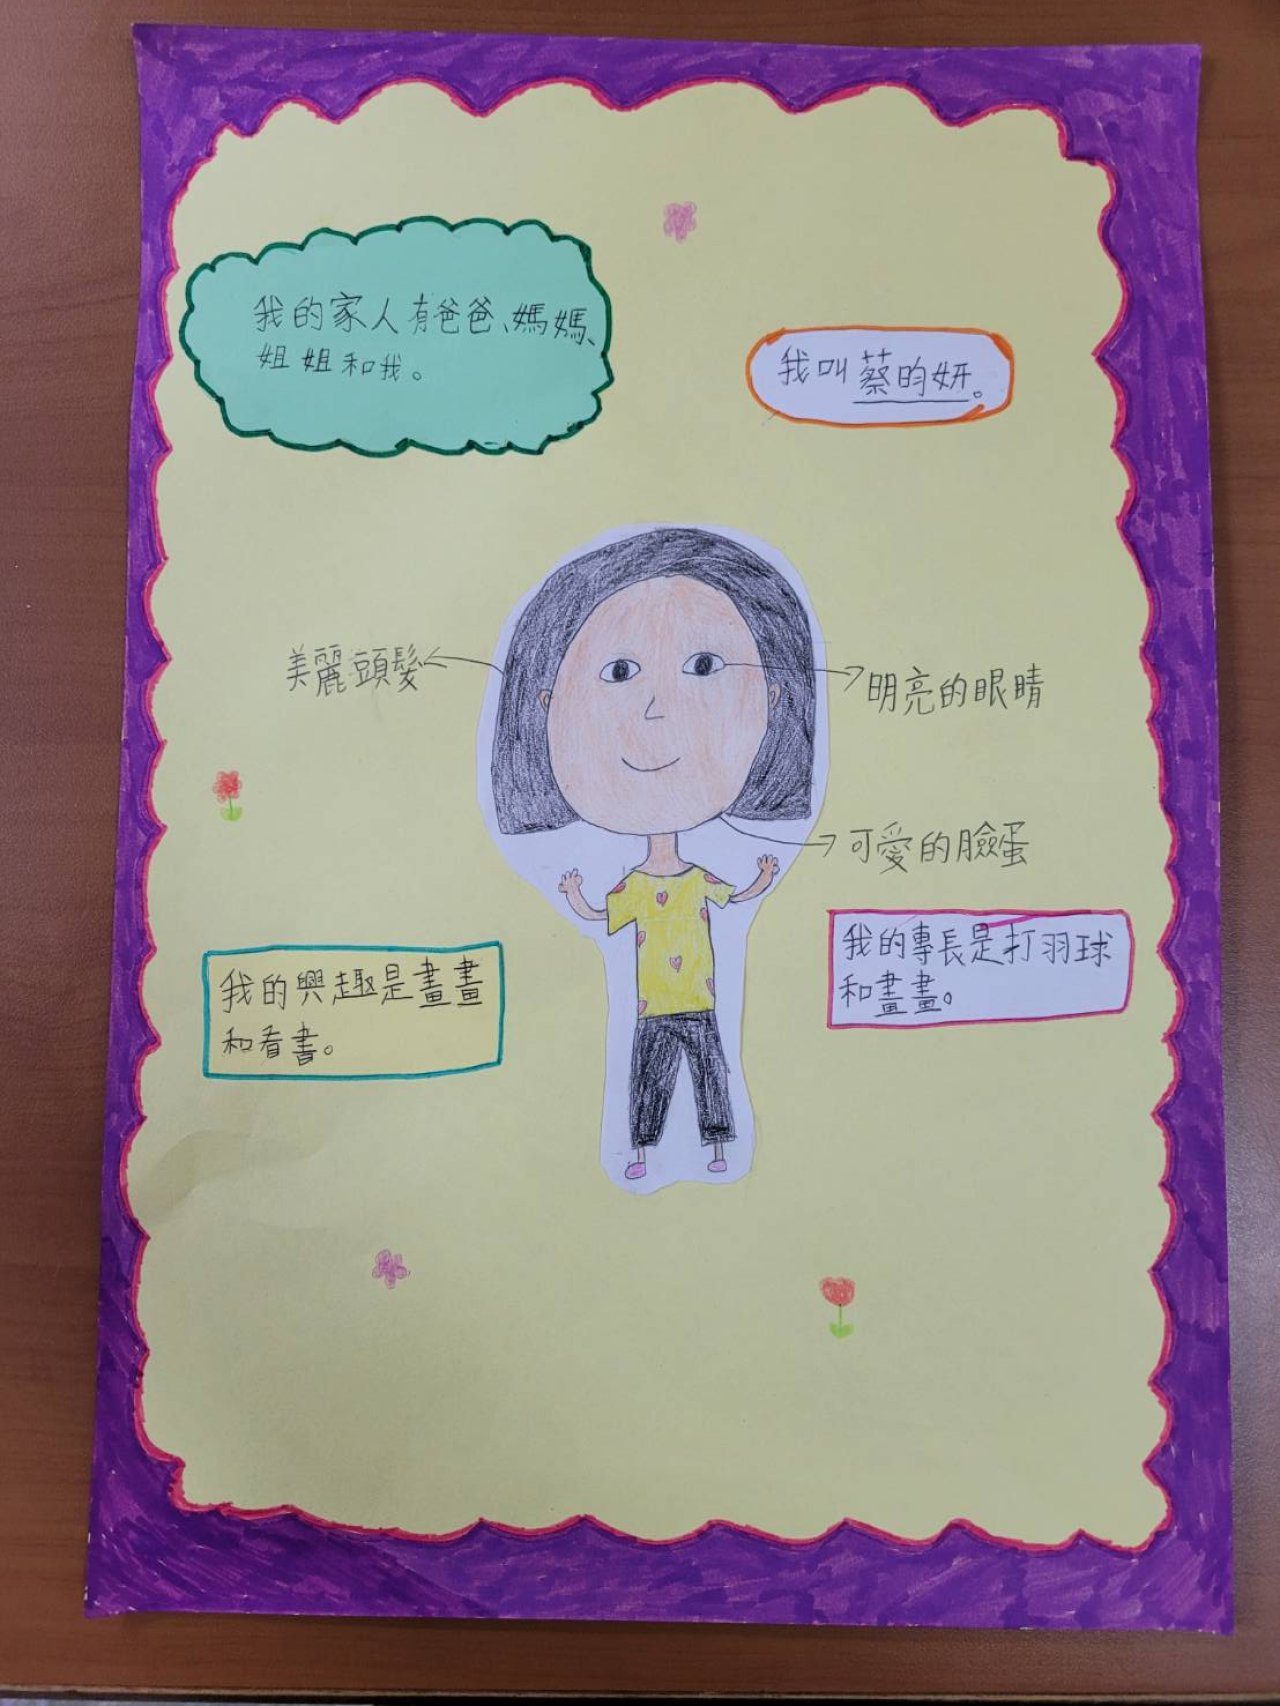 我的家人有爸爸、媽媽、
姐姐和我。
我叫蔡昀妍。
美麗頭髮
明亮的眼睛
可愛的臉蛋
我的興趣是畫畫
和看書。
我的專長是打羽球
和畫畫。